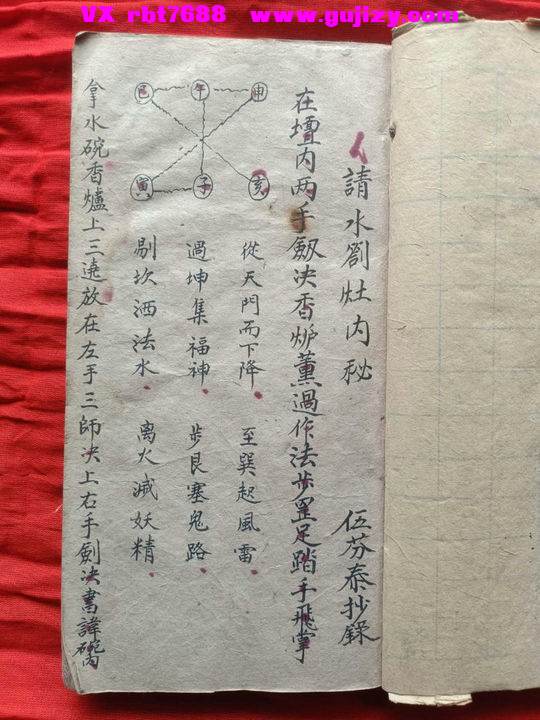 VX rbt7688 www.gujizy.com
請水劄灶内秘 伍芬泰抄錄
在壇内两手劔决香炉薰過作法步罡足踏手飛掌
從天門而下降 至巽起風雷
過坤集福神 步艮塞鬼路
剔坎洒法水 离火滅妖精
巳 午 申
寅 子 亥
拿水碗香爐上三遶放在左手三師决上右手劍决書諱碗内